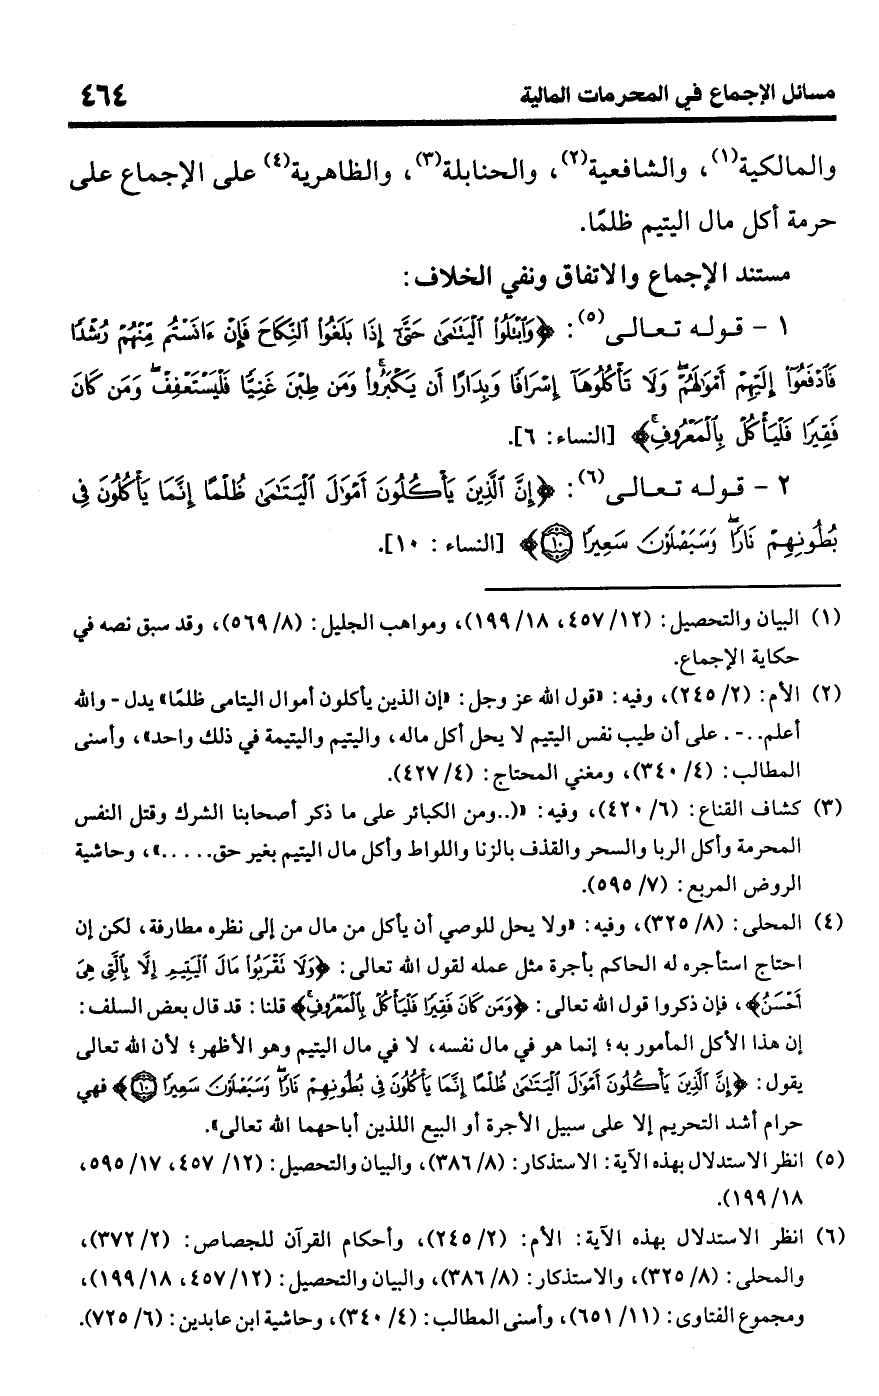 مسائل الإجماع في المحرمات المالية ٤٦٤
والمالكية(١)، والشافعية(٢)، والحنابلة(٣)، والظاهرية(٤) على الإجماع على
حرمة أكل مال اليتيم ظلمًا.
مستند الإجماع والاتفاق ونفي الخلاف:
١ - قوله تعالى(٥): ﴿وَٱبْتَلُوا۟ ٱلْيَتَٰمَىٰ حَتَّىٰٓ إِذَا بَلَغُوا۟ ٱلنِّكَاحَ فَإِنْ ءَانَسْتُم مِّنْهُمْ رُشْدًا
فَٱدْفَعُوٓا۟ إِلَيْهِمْ أَمْوَٰلَهُمْ ۖ وَلَا تَأْكُلُوهَآ إِسْرَافًا وَبِدَارًا أَن يَكْبَرُوا۟ ۚ وَمَن كَانَ غَنِيًّا فَلْيَسْتَعْفِفْ ۖ وَمَن كَانَ
فَقِيرًا فَلْيَأْكُلْ بِٱلْمَعْرُوفِ ۚ﴾ [النساء: ٦].
٢ - قوله تعالى(٦): ﴿إِنَّ ٱلَّذِينَ يَأْكُلُونَ أَمْوَٰلَ ٱلْيَتَٰمَىٰ ظُلْمًا إِنَّمَا يَأْكُلُونَ فِى
بُطُونِهِمْ نَارًا ۖ وَسَيَصْلَوْنَ سَعِيرًا ١٠﴾ [النساء: ١٠].
(١) البيان والتحصيل: (١٢/ ٤٥٧، ١٨/ ١٩٩)، ومواهب الجليل: (٨/ ٥٦٩)، وقد سبق نصه في
حكاية الإجماع.
(٢) الأم: (٢/ ٢٤٥)، وفيه: «قول الله عز وجل: «إن الذين يأكلون أموال اليتامى ظلمًا» يدل - والله
أعلم..-. على أن طيب نفس اليتيم لا يحل أكل ماله، واليتيم واليتيمة في ذلك واحد»، وأسنى
المطالب: (٤/ ٣٤٠)، ومغني المحتاج: (٤/ ٤٢٧).
(٣) كشاف القناع: (٦/ ٤٢٠)، وفيه: «(..ومن الكبائر على ما ذكر أصحابنا الشرك وقتل النفس
المحرمة وأكل الربا والسحر والقذف بالزنا واللواط وأكل مال اليتيم بغير حق.....»، وحاشية
الروض المربع: (٧/ ٥٩٥).
(٤) المحلى: (٨/ ٣٢٥)، وفيه: «ولا يحل للوصي أن يأكل من مال من إلى نظره مطارفة، لكن إن
احتاج استأجره له الحاكم بأجرة مثل عمله لقول الله تعالى: ﴿وَلَا تَقْرَبُوا۟ مَالَ ٱلْيَتِيمِ إِلَّا بِٱلَّتِى هِىَ
أَحْسَنُ﴾، فإن ذكروا قول الله تعالى: ﴿وَمَن كَانَ فَقِيرًا فَلْيَأْكُلْ بِٱلْمَعْرُوفِ ۚ﴾ قلنا: قد قال بعض السلف:
إن هذا الأكل المأمور به؛ إنما هو في مال نفسه، لا في مال اليتيم وهو الأظهر؛ لأن الله تعالى
يقول: ﴿إِنَّ ٱلَّذِينَ يَأْكُلُونَ أَمْوَٰلَ ٱلْيَتَٰمَىٰ ظُلْمًا إِنَّمَا يَأْكُلُونَ فِى بُطُونِهِمْ نَارًا ۖ وَسَيَصْلَوْنَ سَعِيرًا ١٠﴾ فهي
حرام أشد التحريم إلا على سبيل الأجرة أو البيع اللذين أباحهما الله تعالى».
(٥) انظر الاستدلال بهذه الآية: الاستذكار: (٨/ ٣٨٦)، والبيان والتحصيل: (١٢/ ٤٥٧، ١٧/ ٥٩٥،
١٨/ ١٩٩).
(٦) انظر الاستدلال بهذه الآية: الأم: (٢/ ٢٤٥)، وأحكام القرآن للجصاص: (٢/ ٣٧٢)،
والمحلى: (٨/ ٣٢٥)، والاستذكار: (٨/ ٣٨٦)، والبيان والتحصيل: (١٢/ ٤٥٧، ١٨/ ١٩٩)،
ومجموع الفتاوى: (١١/ ٦٥١)، وأسنى المطالب: (٤/ ٣٤٠)، وحاشية ابن عابدين: (٦/ ٧٢٥).